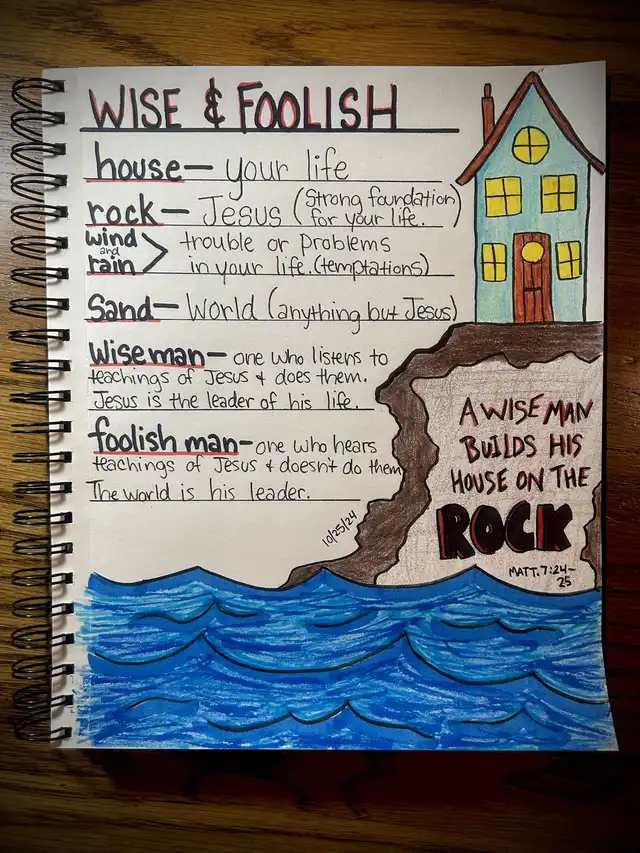 WISE & FOOLISH
house— your life
rock— Jesus (Strong foundation
for your life.)
wind
and
rain > trouble or problems
in your life. (temptations)
Sand— World (anything but Jesus)
Wise man— one who listens to
teachings of Jesus & does them.
Jesus is the leader of his life.
foolish man— one who hears
teachings of Jesus & doesn't do them
The world is his leader.
10/25/24
A WISE MAN
BUILDS HIS
HOUSE ON THE
ROCK
MATT. 7:24-
25